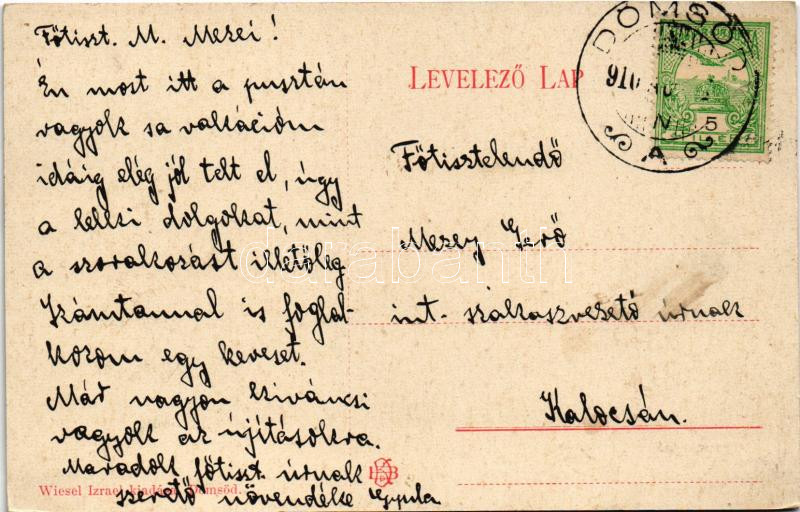 Főtiszt. M. Mezei!
Én most itt a pusztán
vagyok sa vakációm
idáig elég jól telt el, úgy
a lelki dolgokat, mint
a szorakozást illetőleg
Számtannal is foglal-
kozom egy keveset.
Már nagyon kiváncsi
vagyok az újításokra.
Maradok főtiszt. úrnak
szerető növendéke Gyula
Wiesel Izrael kiadása Dömsöd.
LEVELEZŐ LAP
DÖMSÖD
910
N 5
A
Főtisztelendő
Mezey Jenő
int. szakaszvezető úrnak
Kalocsán.
darabanth